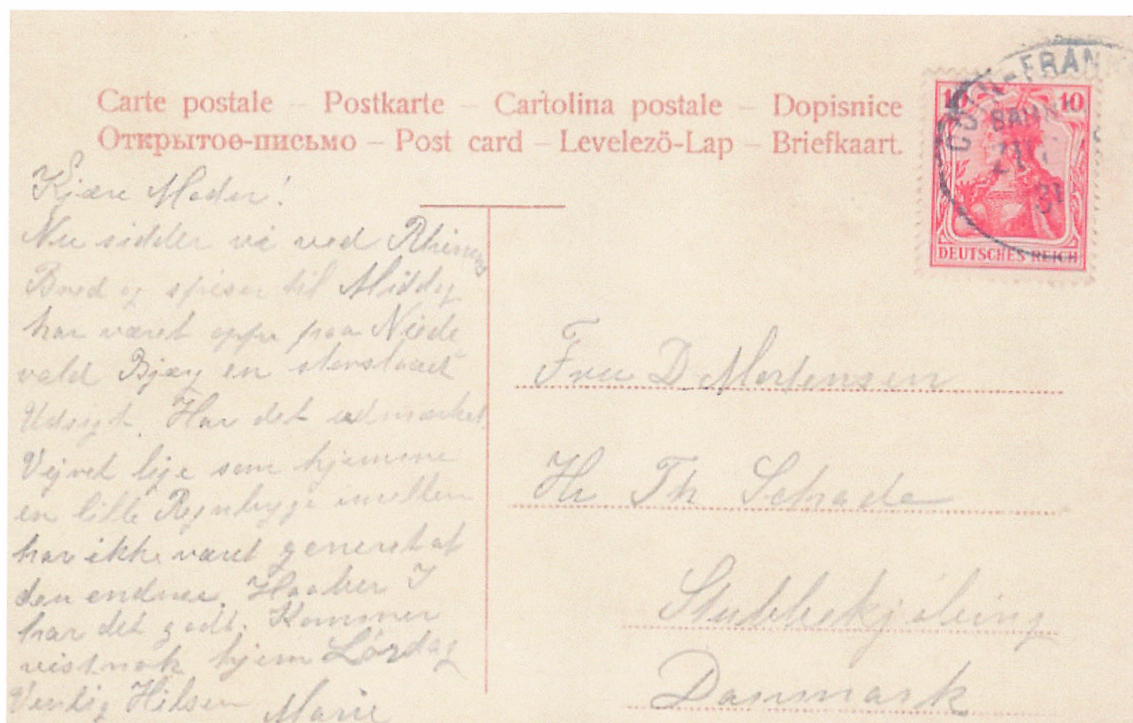 Carte postale – Postkarte – Cartolina postale – Dopisnice
Открытое-письмо – Post card – Levelezö-Lap – Briefkaart.
CÖLN-FRANK
BAHN
10 10
DEUTSCHES REICH
Kjære Moder!
Nu sidder vi ved Rhinens
Bred og spiser til Middg
har været oppe paa Niede
vald Bjærg en storslaaet
Udsigt. Har det udmærket
Vejret lige som hjemme
en lille Regnbyge imellem
har ikke været generet af
den endnu. Haaber I
har det godt. Kommer
vistnok hjem Lørdag
Venlig Hilsen Marie
Fru D. Mortensen
Hr Th Schade
Stubbekjøbing
Danmark